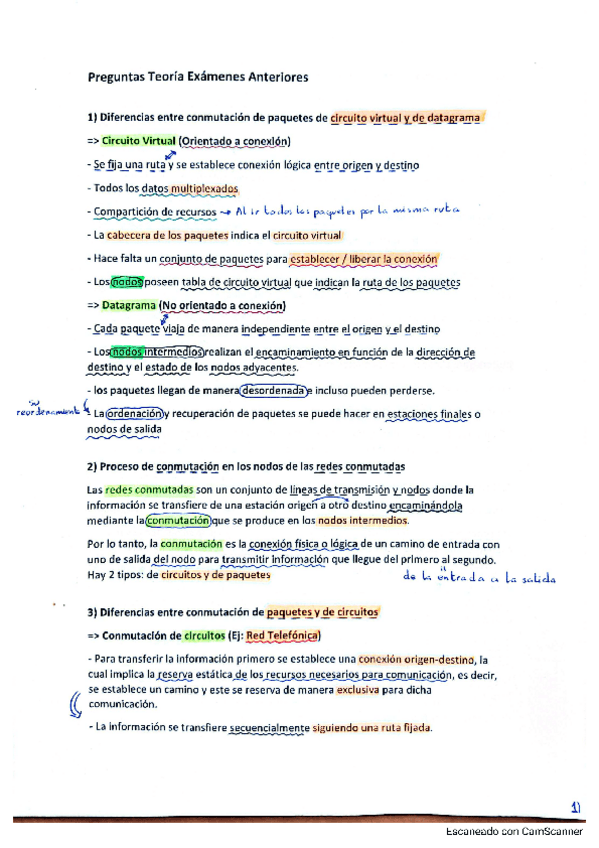 Preguntas Teoría Exámenes Anteriores
1) Diferencias entre conmutación de paquetes de circuito virtual y de datagrama
=> Circuito Virtual (Orientado a conexión)
- Se fija una ruta y se establece conexión lógica entre origen y destino
- Todos los datos multiplexados
- Compartición de recursos → Al ir todos los paquetes por la misma ruta
- La cabecera de los paquetes indica el circuito virtual
- Hace falta un conjunto de paquetes para establecer / liberar la conexión
- Los nodos poseen tabla de circuito virtual que indican la ruta de los paquetes
=> Datagrama (No orientado a conexión)
- Cada paquete viaja de manera independiente entre el origen y el destino
- Los nodos intermedios realizan el encaminamiento en función de la dirección de
destino y el estado de los nodos adyacentes.
- los paquetes llegan de manera desordenada e incluso pueden perderse.
su
reordenamiento
- La ordenación y recuperación de paquetes se puede hacer en estaciones finales o
nodos de salida
2) Proceso de conmutación en los nodos de las redes conmutadas
Las redes conmutadas son un conjunto de líneas de transmisión y nodos donde la
información se transfiere de una estación origen a otro destino encaminándola
mediante la conmutación que se produce en los nodos intermedios.
Por lo tanto, la conmutación es la conexión física o lógica de un camino de entrada con
uno de salida del nodo para transmitir información que llegue del primero al segundo.
Hay 2 tipos: de circuitos y de paquetes
de la entrada a la salida
3) Diferencias entre conmutación de paquetes y de circuitos
=> Conmutación de circuitos (Ej: Red Telefónica)
- Para transferir la información primero se establece una conexión origen-destino, la
cual implica la reserva estática de los recursos necesarios para comunicación, es decir,
se establece un camino y este se reserva de manera exclusiva para dicha
comunicación.
- La información se transfiere secuencialmente siguiendo una ruta fijada.
1)
Escaneado con CamScanner